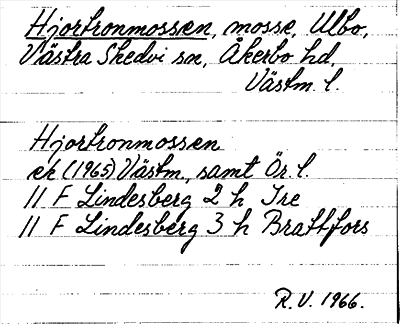 Hjortronmossen, mosse, Ulbo,
Västra Skedvi sn, Åkerbo hd,
Västm. l.
Hjortronmossen
ek (1965) Västm., samt Ör. l.
11 F Lindesberg 2 h Tre
11 F Lindesberg 3 h Brattfors
R. V. 1966.